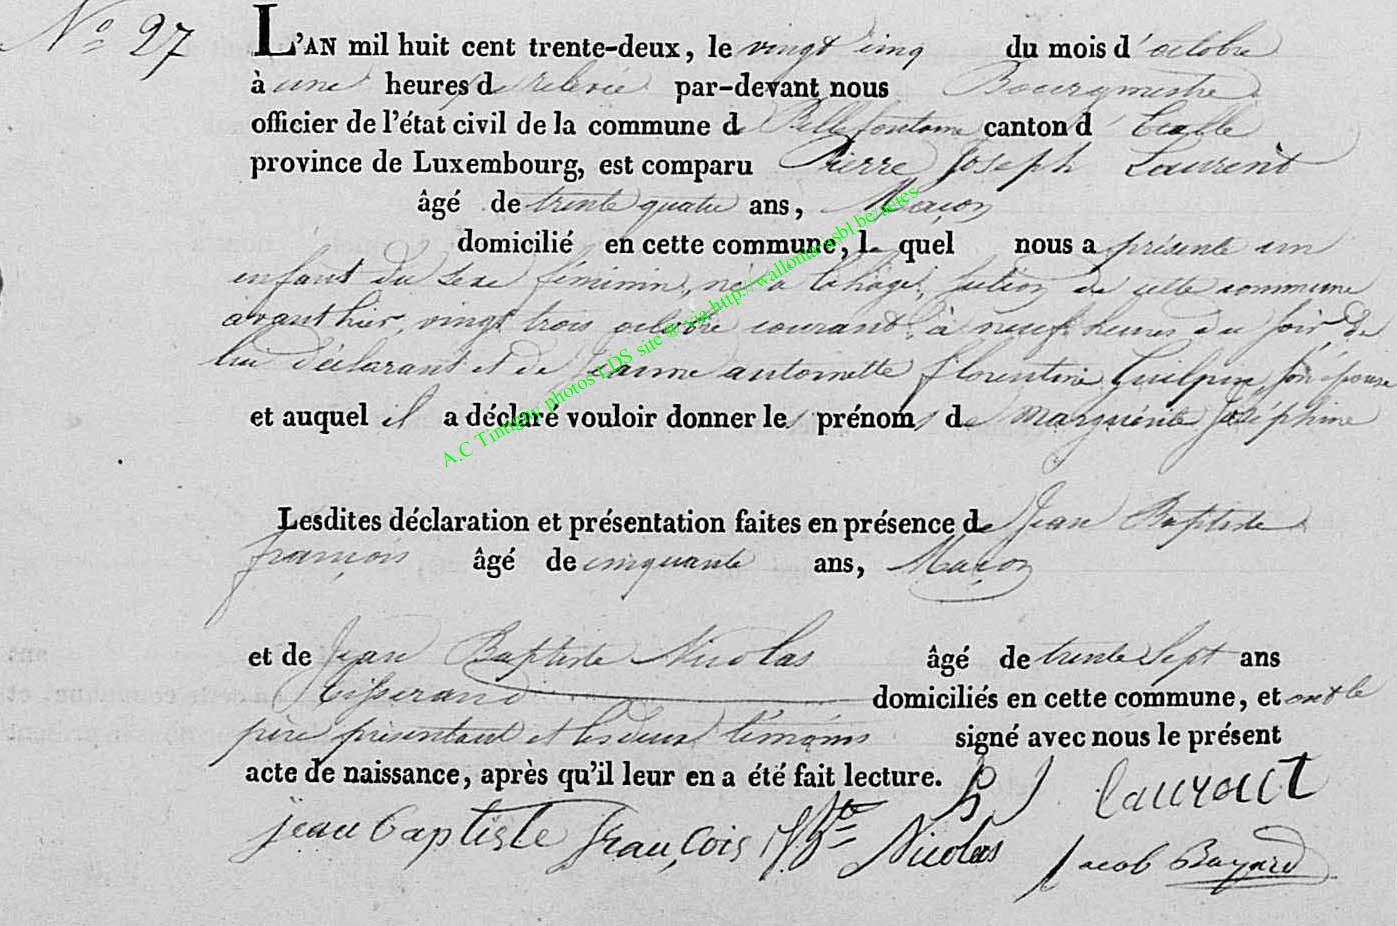 N° 27
L'AN mil huit cent trente-deux, le vingt cinq du mois d'octobre
à une heures de relevée par-devant nous Bourgmestre
officier de l'état civil de la commune de Bellefontaine canton d'Etalle
province de Luxembourg, est comparu Pierre Joseph Laurent
âgé de trente quatre ans, Maçon
domicilié en cette commune, le quel nous a présenté un
enfant du sexe féminin, né a lahage, section de cette commune
avant hier vingt trois octobre courant, à neuf heures du soir de
lui déclarant et de Jeanne antoinette florentine Guilpin, son épouse
et auquel il a déclaré vouloir donner les prénoms de marguerite Joséphine
Lesdites déclaration et présentation faites en présence de Jean Baptiste
françois âgé de cinquante ans, Maçon
et de Jean Baptiste Nicolas âgé de trente Sept ans
tisserand domiciliés en cette commune, et ont le
père présentant et les deux témoins signé avec nous le présent
acte de naissance, après qu'il leur en a été fait lecture. P J Laurant
jean baptiste françois J Bte Nicolas Jacob Bayard
A.C Tintigny photos LDS site @ via http://wallonia.asbl.be/actes